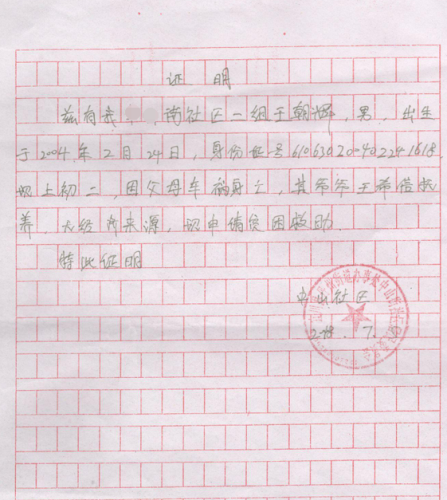 证 明
兹有我 南社区一组于朝辉,男,出生
于2004年2月24日,身份证号610630200402241618,
现上初二,因父母车祸身亡,其爷爷于希信救
养,无经济来源,现申请贫困救助.
特此证明
中山社区